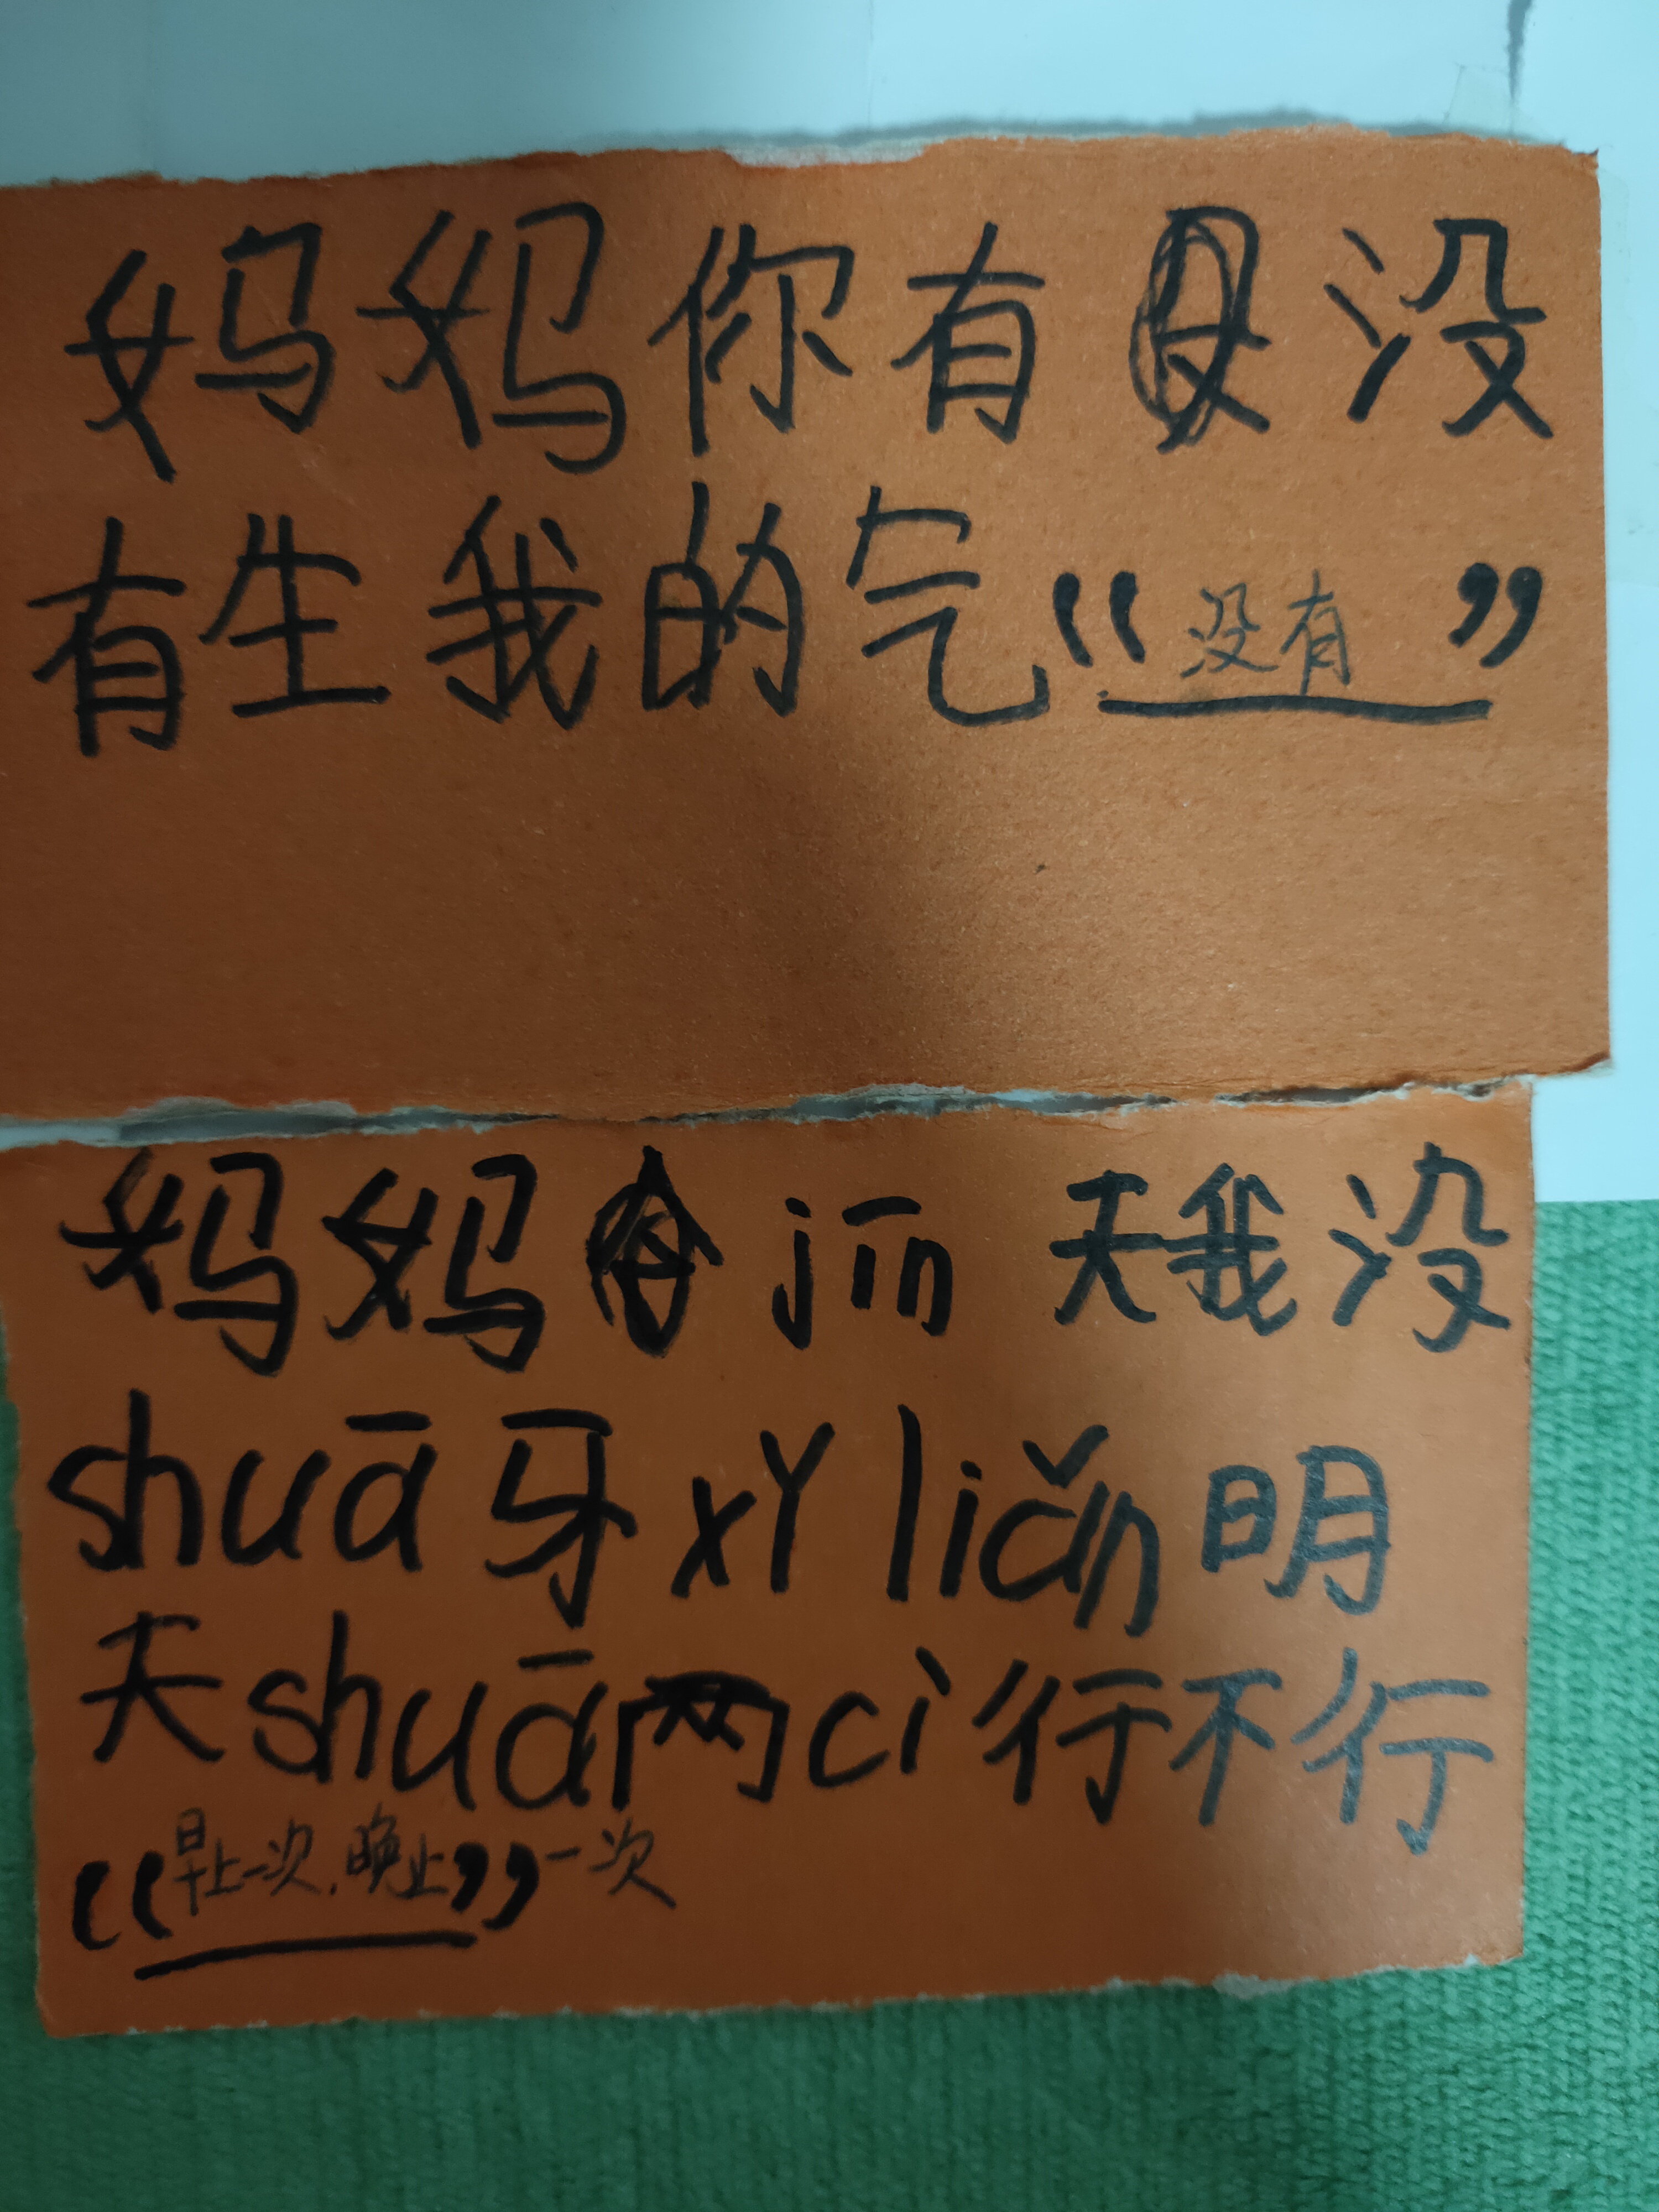 妈妈你有没
有生我的气“没有”
妈妈jīn天我没
shuā牙xǐ liǎn明
天shuā两ci行不行
“早上一次,晚上”一次